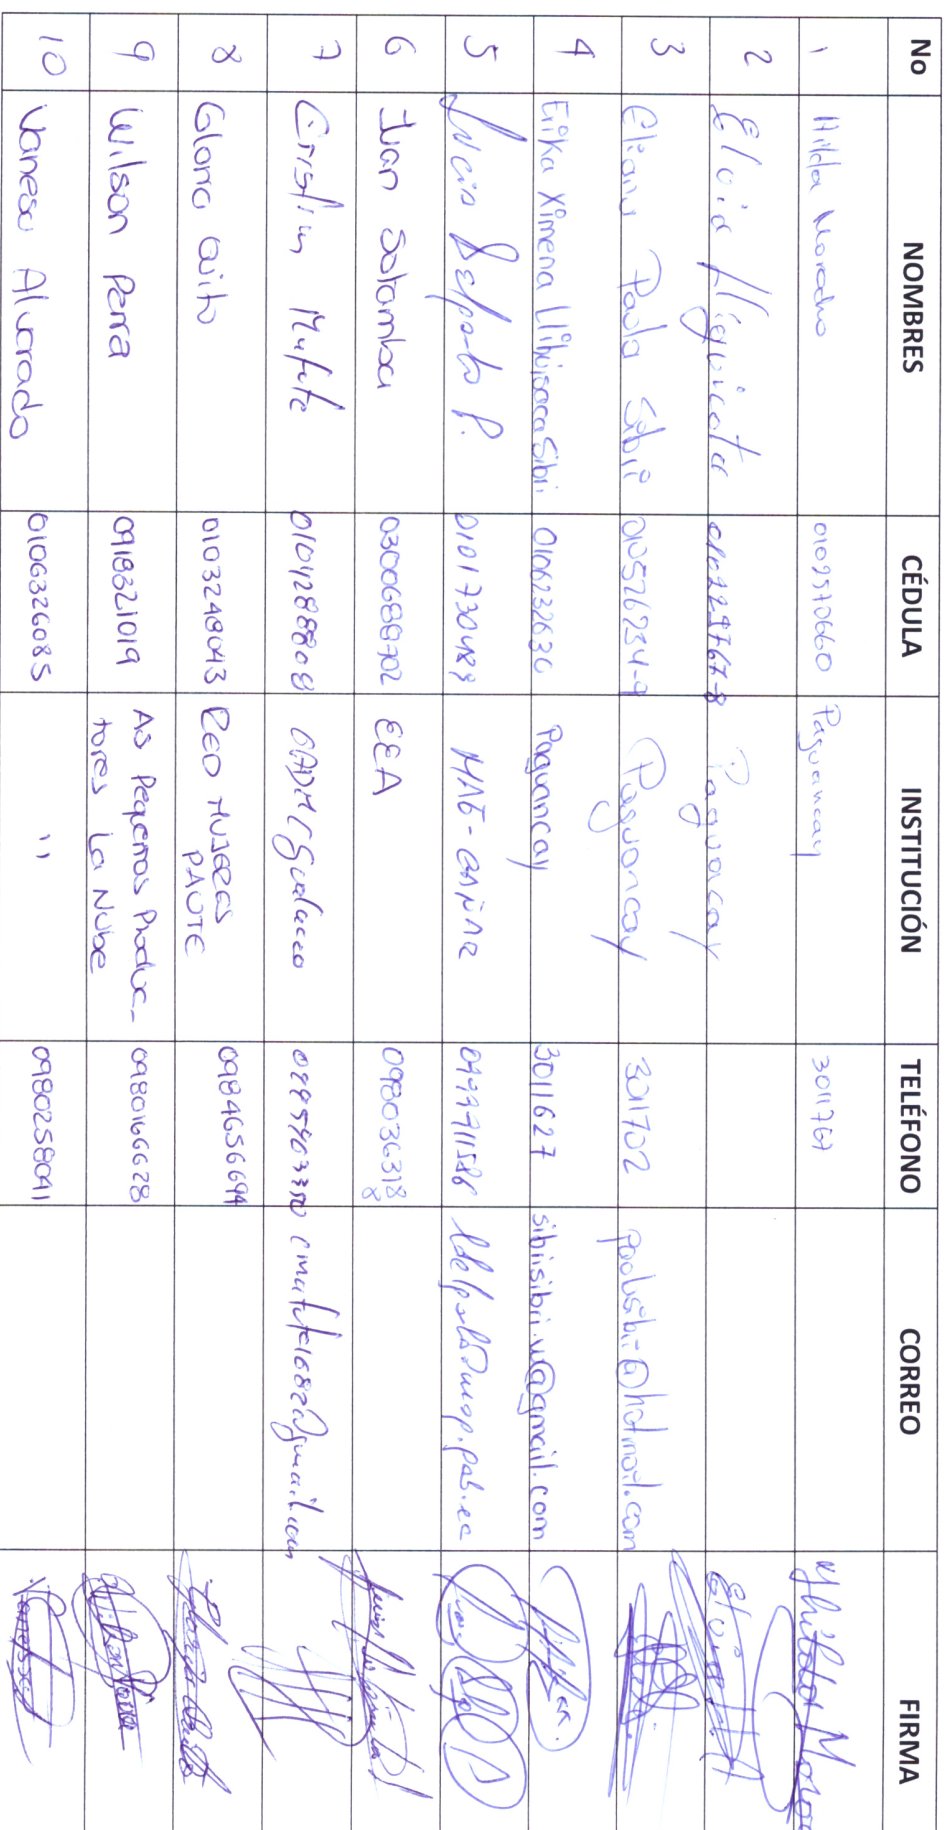 No NOMBRES CÉDULA INSTITUCIÓN TELÉFONO CORREO FIRMA
1 Hilda Morocho 0109570660 Paguancay 3011767
2 Elvia Paguancay
3 Eliana Paola Sibri 010526234-9 Paguancay 301702 paolasibri@hotmail.com
4 Erika Ximena Llibisaca Sibri 0106232636 Paguancay 3011627 sibrisibri.w@gmail.com
5 0101730489 MAE- 0999711586
6 Juan Solamba 0300688702 EEA 0980363188
7 Cristian Matute 0104288808 GADM Gualaceo cmatute1682@gmail.com
8 Gloria Quito 0103248043 RED MUJERES
PAUTE 0984656694
9 Wilson Parra 0918321019 As Pequeños Produc-
tores La Nube 0980166628
10 Vanesa Alvarado 0106326085 " 0980258041